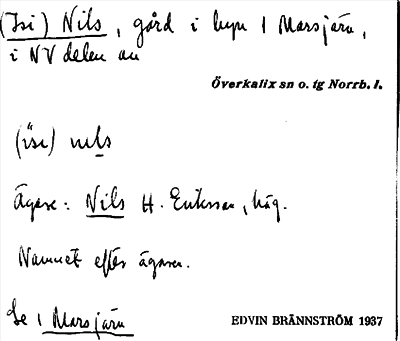 (Isi) Nils, gård i byn 1 Marsjärv,
i NV delen av
Överkalix sn o. tg Norrb. l.
(ísi) nils
Ägare: Nils H. Eriksson, häg.
Namnet efter ägaren.
Se 1 Marsjärv
EDVIN BRÄNNSTRÖM 1937